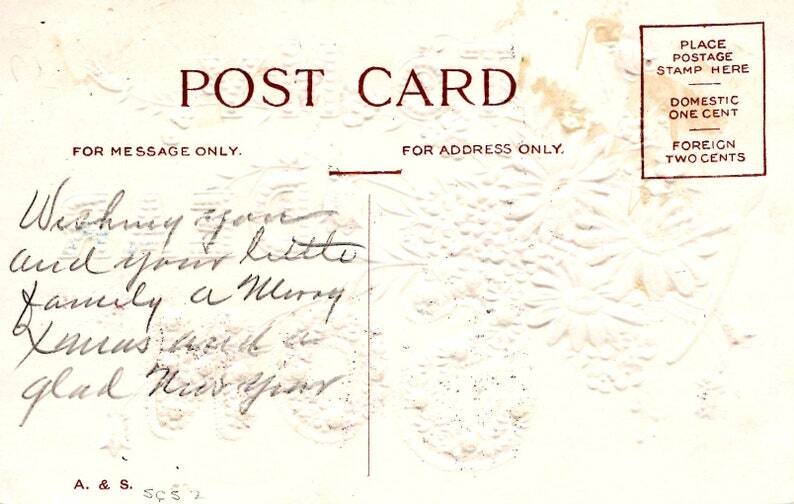 POST CARD
PLACE
POSTAGE
STAMP HERE
DOMESTIC
ONE CENT
FOREIGN
TWO CENTS
FOR MESSAGE ONLY.
FOR ADDRESS ONLY.
Wishing you
and your little
family a Merry
Xmas and a
glad New Year
A. & S.